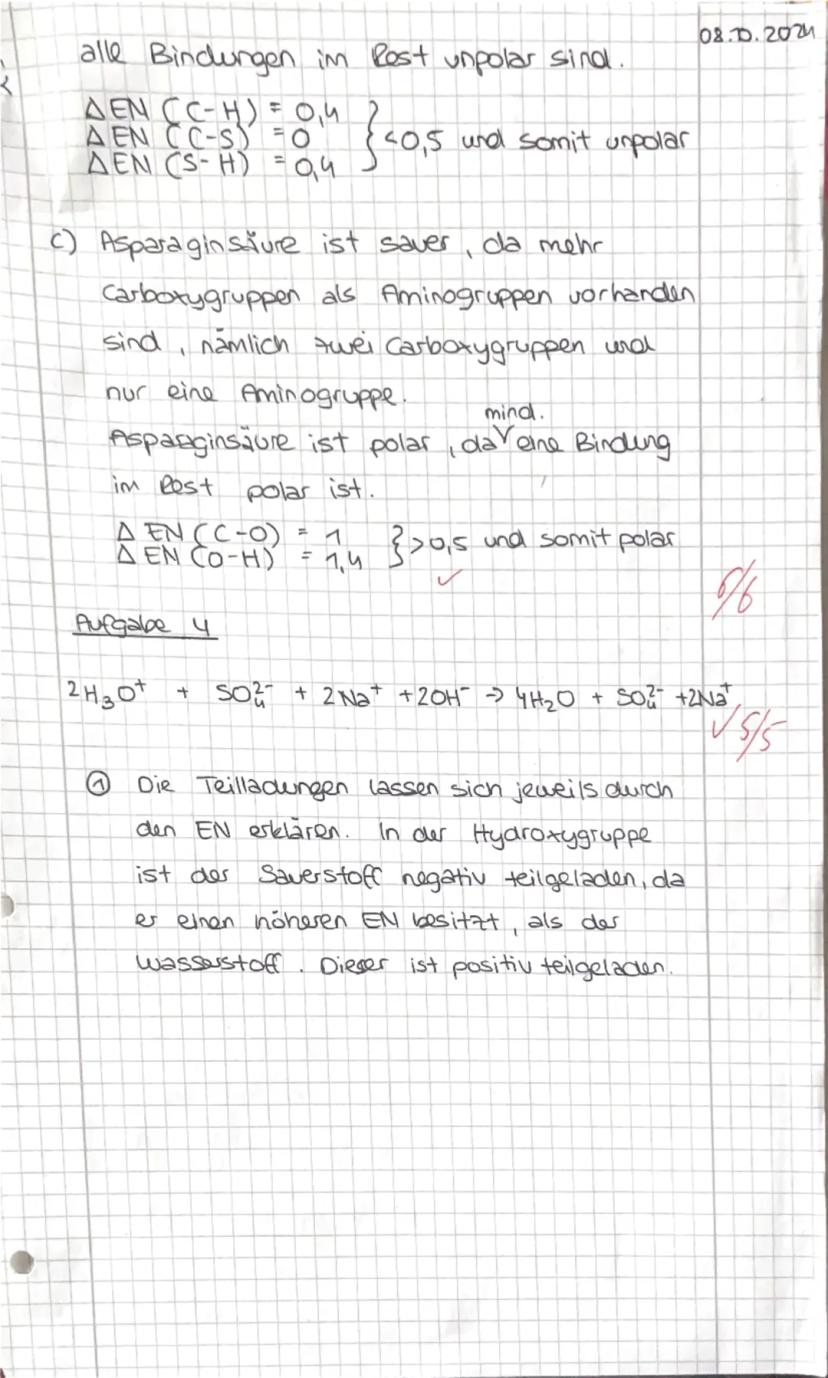 08.10.2024
alle Bindungen im Rest unpolar sind.
ΔEN (C-H) = 0,4
ΔEN (C-S) = 0 } <0,5 und somit unpolar
ΔEN (S-H) = 0,4
c) Asparaginsäure ist sauer, da mehr
Carboxygruppen als Aminogruppen vorhanden
sind, nämlich zwei Carboxygruppen und
nur eine Aminogruppe.
mind.
Asparaginsäure ist polar, da eine Bindung
im Rest polar ist.
ΔEN (C-O) = 1 } >0,5 und somit polar
ΔEN (O-H) = 1,4
✓
6/6
Aufgabe 4
2H₃O⁺ + SO₄²⁻ + 2Na⁺ + 2OH⁻ → 4H₂O + SO₄²⁻ + 2Na⁺
✓ 5/5
① Die Teilladungen lassen sich jeweils durch
den EN erklären. In der Hydroxygruppe
ist der Sauerstoff negativ teilgeladen, da
er einen höheren EN besitzt, als der
Wasserstoff. Dieser ist positiv teilgeladen.